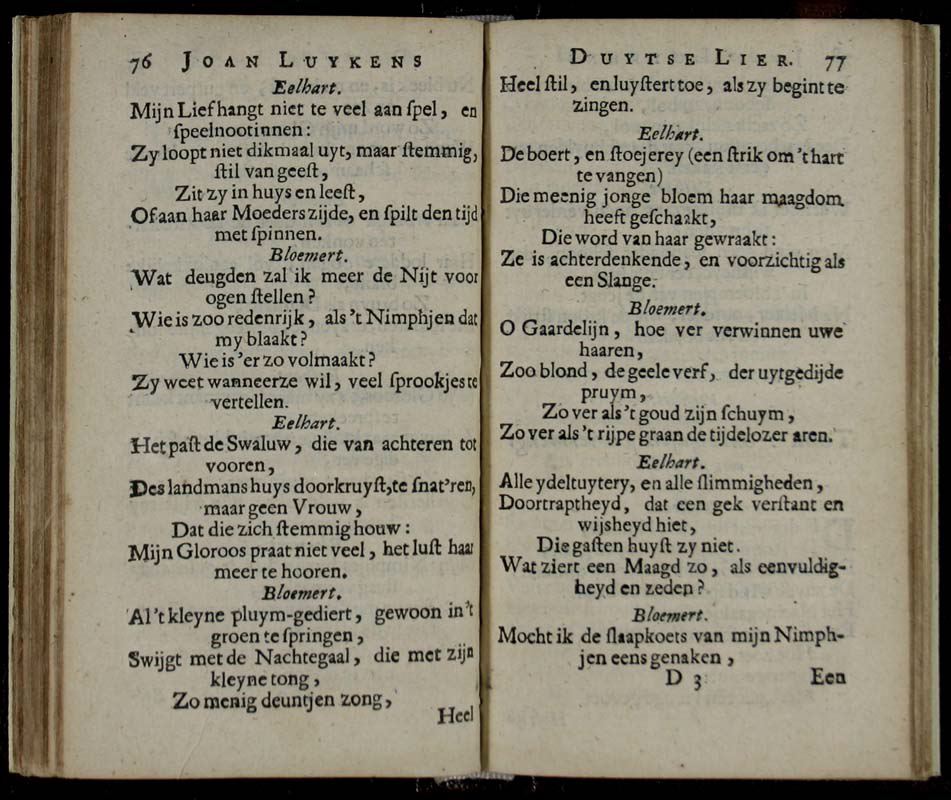 76 JOAN LUYKENS
Eelhart.
Mijn Lief hangt niet te veel aan ſpel, en
ſpeelnootinnen:
Zy loopt niet dikmaal uyt, maar ſtemmig,
ſtil van geeſt,
Zit zy in huys en leeſt,
Of aan haar Moeders zijde, en ſpilt den tijd
met ſpinnen.
Bloemert.
Wat deugden zal ik meer de Nijt voor
ogen ſtellen?
Wie is zoo redenrijk, als 't Nimphjen dat
my blaakt?
Wie is 'er zo volmaakt?
Zy weet wanneerze wil, veel ſprookjes te
vertellen.
Eelhart.
Het paſt de Swaluw, die van achteren tot
vooren,
Des landmans huys doorkruyſt, te ſnat'ren,
maar geen Vrouw,
Dat die zich ſtemmig houw:
Mijn Gloroos praat niet veel, het luſt haar
meer te hooren.
Bloemert.
Al 't kleyne pluym-gediert, gewoon in 't
groen te ſpringen,
Swijgt met de Nachtegaal, die met zijn
kleyne tong,
Zo menig deuntjen zong,
Heel
DUYTSE LIER. 77
Heel ſtil, en luyſtert toe, als zy begint te
zingen.
Eelhart.
De boert, en ſtoejerey (een ſtrik om 't hart
te vangen)
Die meenig jonge bloem haar maagdom
heeft geſchaakt,
Die word van haar gewraakt:
Ze is achterdenkende, en voorzichtig als
een Slange.
Bloemert.
O Gaardelijn, hoe ver verwinnen uwe
haaren,
Zoo blond, de geele verf, der uytgedijde
pruym,
Zo ver als 't goud zijn ſchuym,
Zo ver als 't rijpe graan de tijdelozer aren.
Eelhart.
Alle ydeltuytery, en alle ſlimmigheden,
Doortraptheyd, dat een gek verſtant en
wijsheyd hiet,
Die gaſten huyſt zy niet.
Wat ziert een Maagd zo, als eenvuldig-
heyd en zeden?
Bloemert.
Mocht ik de ſlaapkoets van mijn Nimph-
jen eens genaken,
D 3 Een